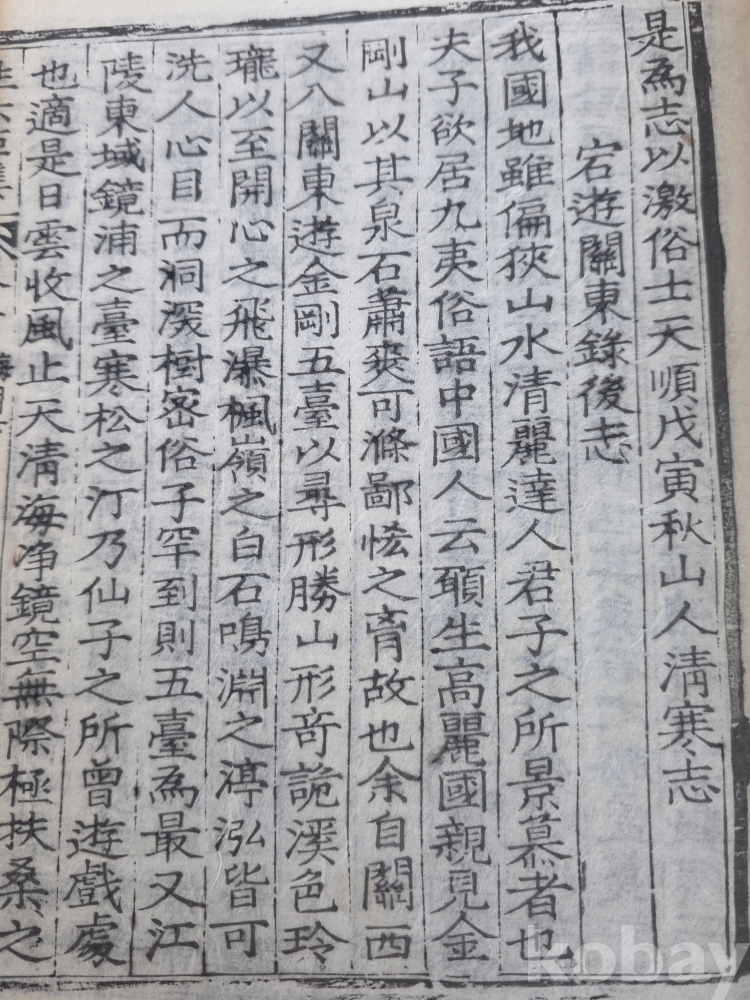 是為志以激俗士天順戊寅秋山人清寒志
宕遊關東錄後志
我國地雖偏狹山水清麗達人君子之所景慕者也
夫子欲居九夷俗語中國人云願生高麗國親見金
剛山以其泉石蕭爽可滌鄙悋之育故也余自關西
又入關東遊金剛五臺以尋形勝山形奇詭溪色玲
瓏以至開心之飛瀑楓嶺之白石鳴淵之渟泓皆可
洗人心目而洞深樹密俗子罕到則五臺為最又江
陵東域鏡浦之臺寒松之汀乃仙子之所曾遊戲處
也適是日雲收風止天清海净鏡空無際極扶桑之
kobay